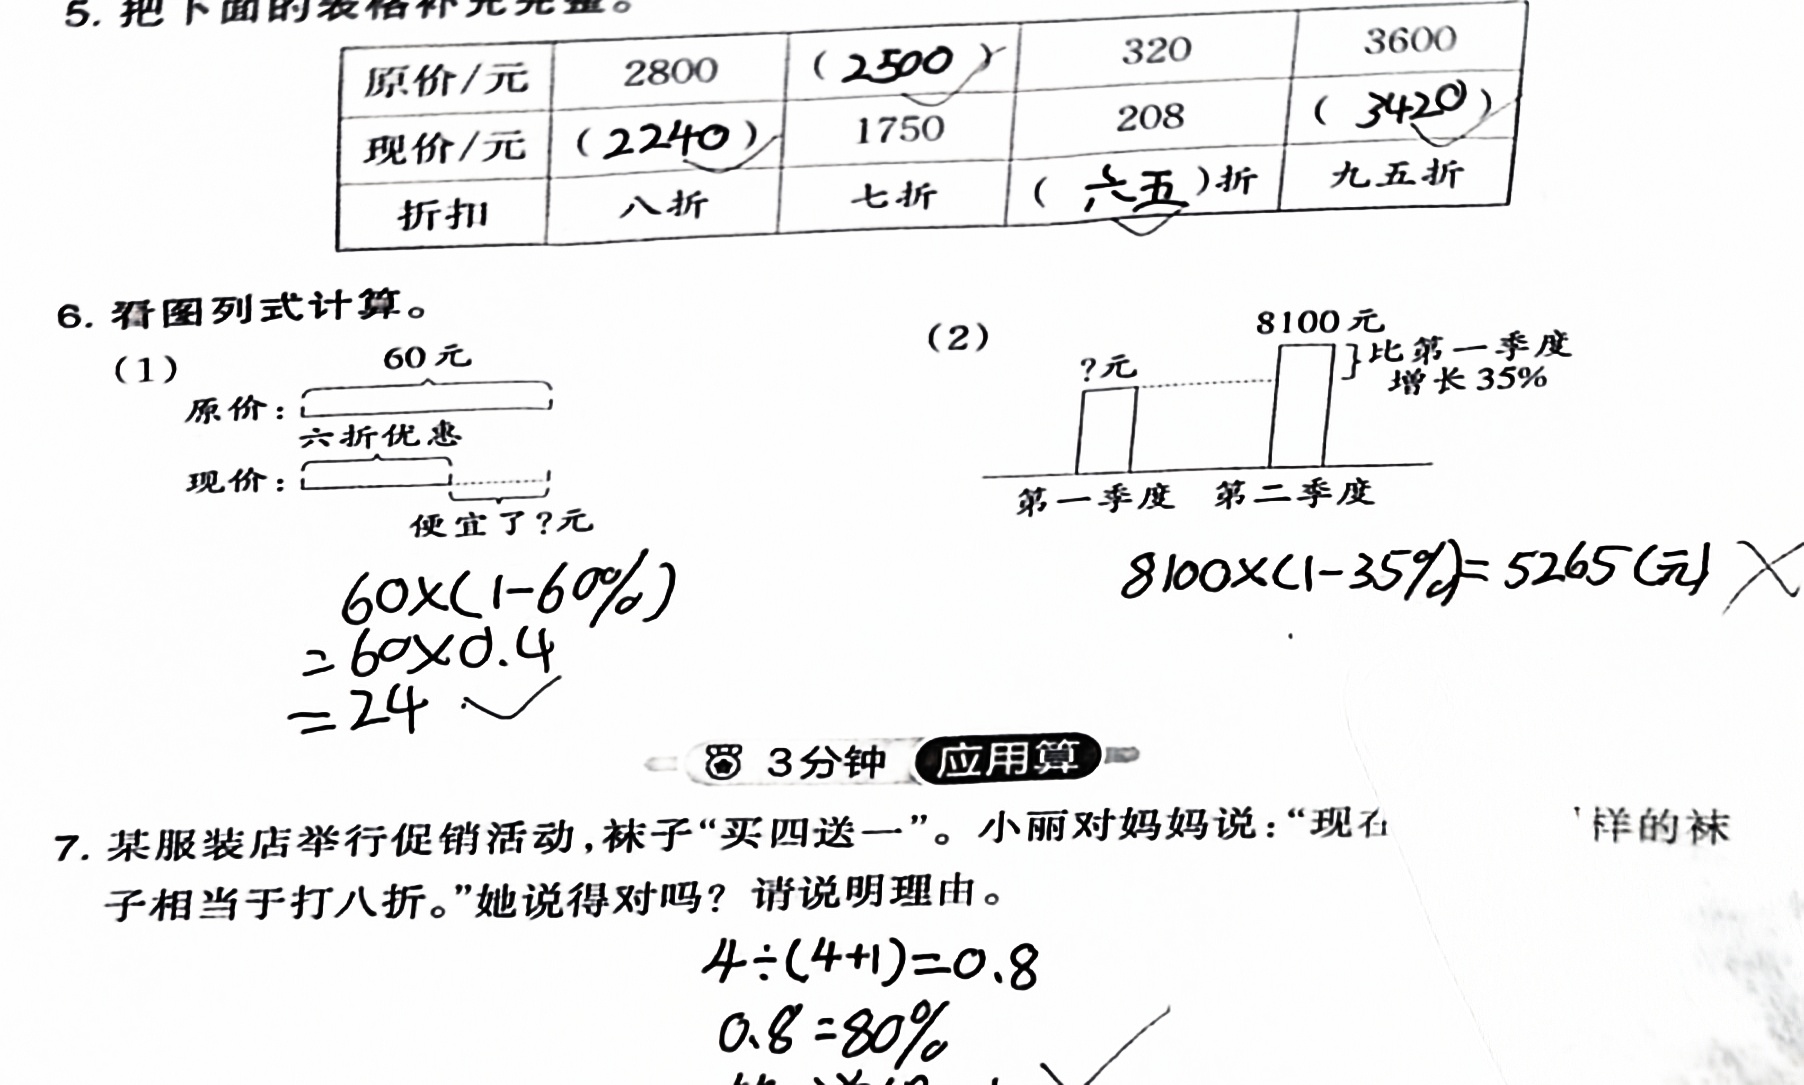 5. 把下面的表格补充完整。
原价/元 2800 (2500) 320 3600
现价/元 (2240) 1750 208 (3420)
折扣 八折 七折 (六五)折 九五折
6. 看图列式计算。
(1) (2)
60元
原价:
六折优惠
现价:
便宜了?元
8100元
?元
比第一季度
增长35%
第一季度 第二季度
60×(1-60%)
=60×0.4
=24
8100×(1-35%)=5265(元)
3分钟 应用算
7. 某服装店举行促销活动,袜子“买四送一”。小丽对妈妈说:“现在 样的袜
子相当于打八折。”她说得对吗? 请说明理由。
4÷(4+1)=0.8
0.8=80%